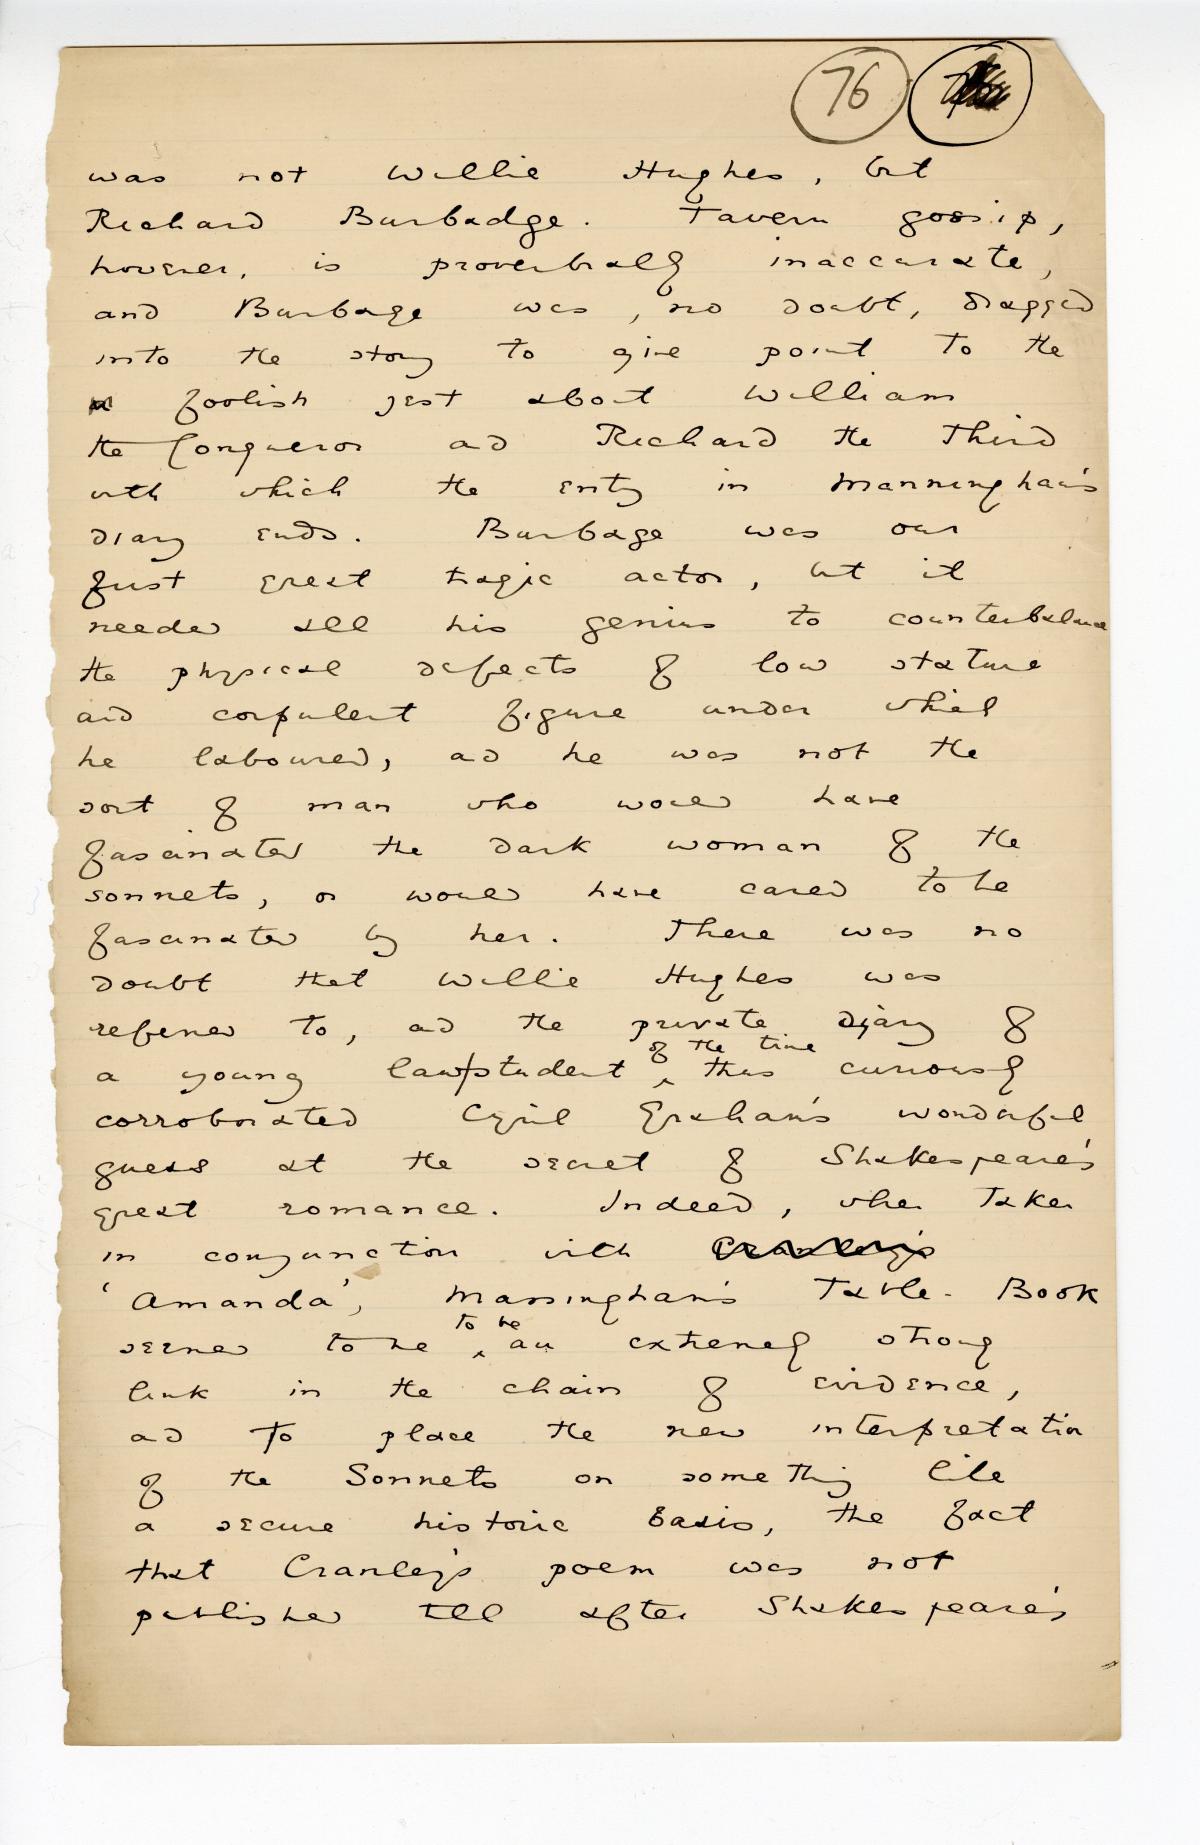 76
was not Willie Hughes, but
Richard Burbadge. Tavern gossip,
however, is proverbially inaccurate,
and Burbage was, no doubt, dragged
into the story to give point to the
foolish jest about William
the Conqueror and Richard the Third
with which the entry in Manningham's
diary ends. Burbage was our
first great tragic actor, but it
needed all his genius to counterbalance
the physical defects of low stature
and corpulent figure under which
he laboured, and he was not the
sort of man who would have
fascinated the dark woman of the
sonnets, or would have cared to be
fascinated by her. There was no
doubt that Willie Hughes was
referred to, and the private diary of
of the time
a young law student thus curiously
corroborated Cyril Graham's wonderful
guess at the secret of Shakespeare's
great romance. Indeed, when taken
in conjunction with Cranley's
'Amanda', Manningham's Table-Book
to be
seemed to be an extremely strong
link in the chain of evidence,
and to place the new interpretation
of the Sonnets on something like
a secure historic basis, the fact
that Cranley's poem was not
published till after Shakespeare's